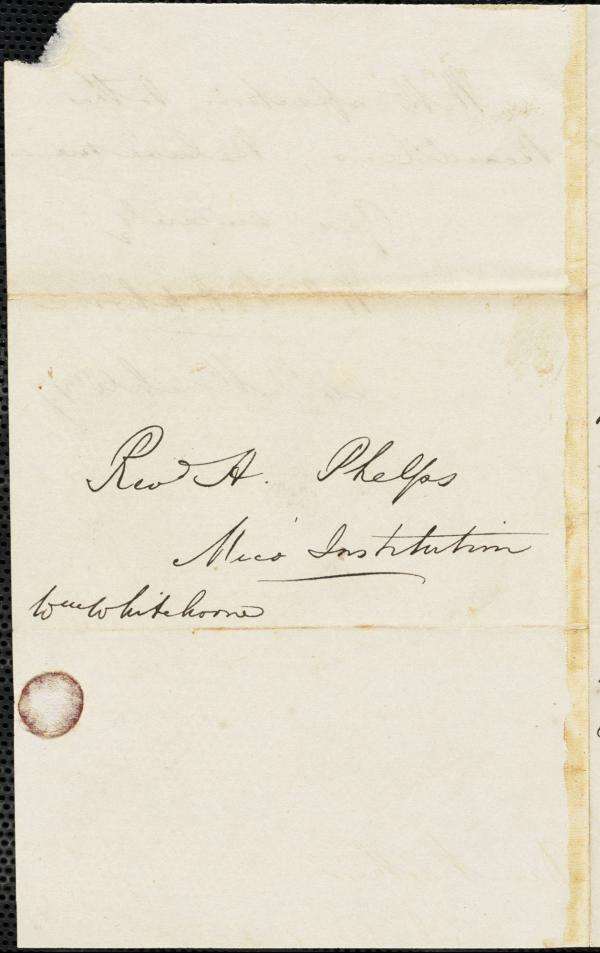 Revd A. Phelps
Mico Institution
Wm Whitehorne